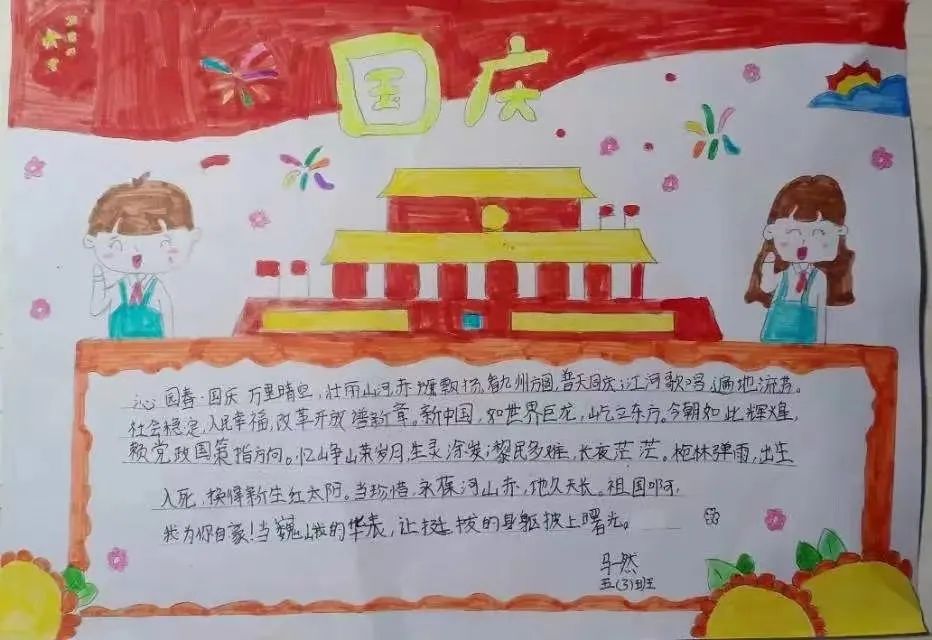 国庆
沁园春·国庆 万里晴空，壮丽山河，赤旗飘扬。看九州方圆，普天同庆；江河歌唱，遍地流芳。
社会稳定，人民幸福，改革开放谱新章。新中国，如世界巨龙，屹立东方。今朝如此辉煌，
赖党政国策指方向。忆峥嵘岁月，生灵涂炭；黎民多难，长夜茫茫。枪林弹雨，出生
入死，换得新生红太阳。当珍惜，永葆河山赤，地久天长。祖国啊，
我为你自豪！当巍峨的华表，让挺拔的身躯披上曙光。
马一然
五(3)班